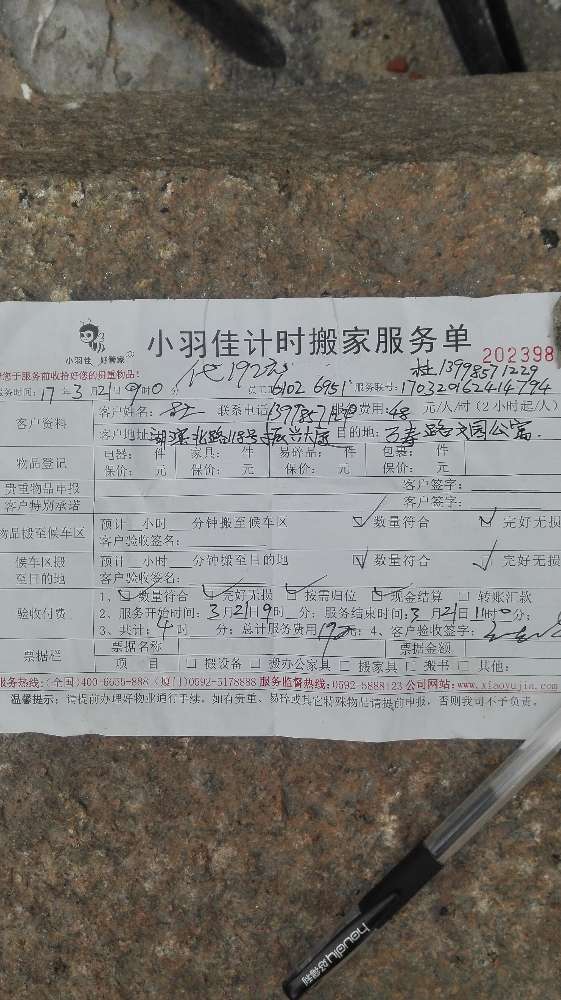 小羽佳 好管家
小羽佳计时搬家服务单
202398
您于服务前收拾好您的贵重物品!
代192元
杜13998571229
服务时间: 17年3月21日9时0分 6102 6951 服务联号: 1703201624144794
客户资料
客户姓名: 联系电话 服务费用: 48 元/人/时(2小时起/人)
客户地址 湖滨北路118号振兴大厦 目的地: 万寿路 公寓
物品登记
电器: 件 家具: 件 易碎品: 件 包装: 件
保价: 元 保价: 元 保价: 元 保价: 元
贵重物品申报 客户签字:
客户特别承诺 客户签字:
物品搬至候车区
预计__小时__分钟搬至候车区 数量符合 完好无损
客户验收签名:
候车区搬至目的地
预计__小时__分钟搬至目的地 数量符合 完好无损
客户验收签名:
验收付费
1、数量符合 完好无损 按需归位 现金结算 转账汇款
2、服务开始时间: 3月21日9时 分; 服务结束时间: 3月21日11时0分;
3、共计: 4时 分; 总计服务费用 192元; 4、客户验收签字:
票据栏
票据名称 票据金额
项 目 □搬设备 □搬办公家具 □搬家具 □搬书 □其他:
服务热线:(全国)400-6655-888 (厦门)0592-5178888 服务监督热线:0592-5888123 公司网站:www.xiaoyujia.com
温馨提示: 请提前办理好物业通行手续, 如有贵重、易碎或其它特殊物品请提前申报, 否则我司不予负责。
好得利